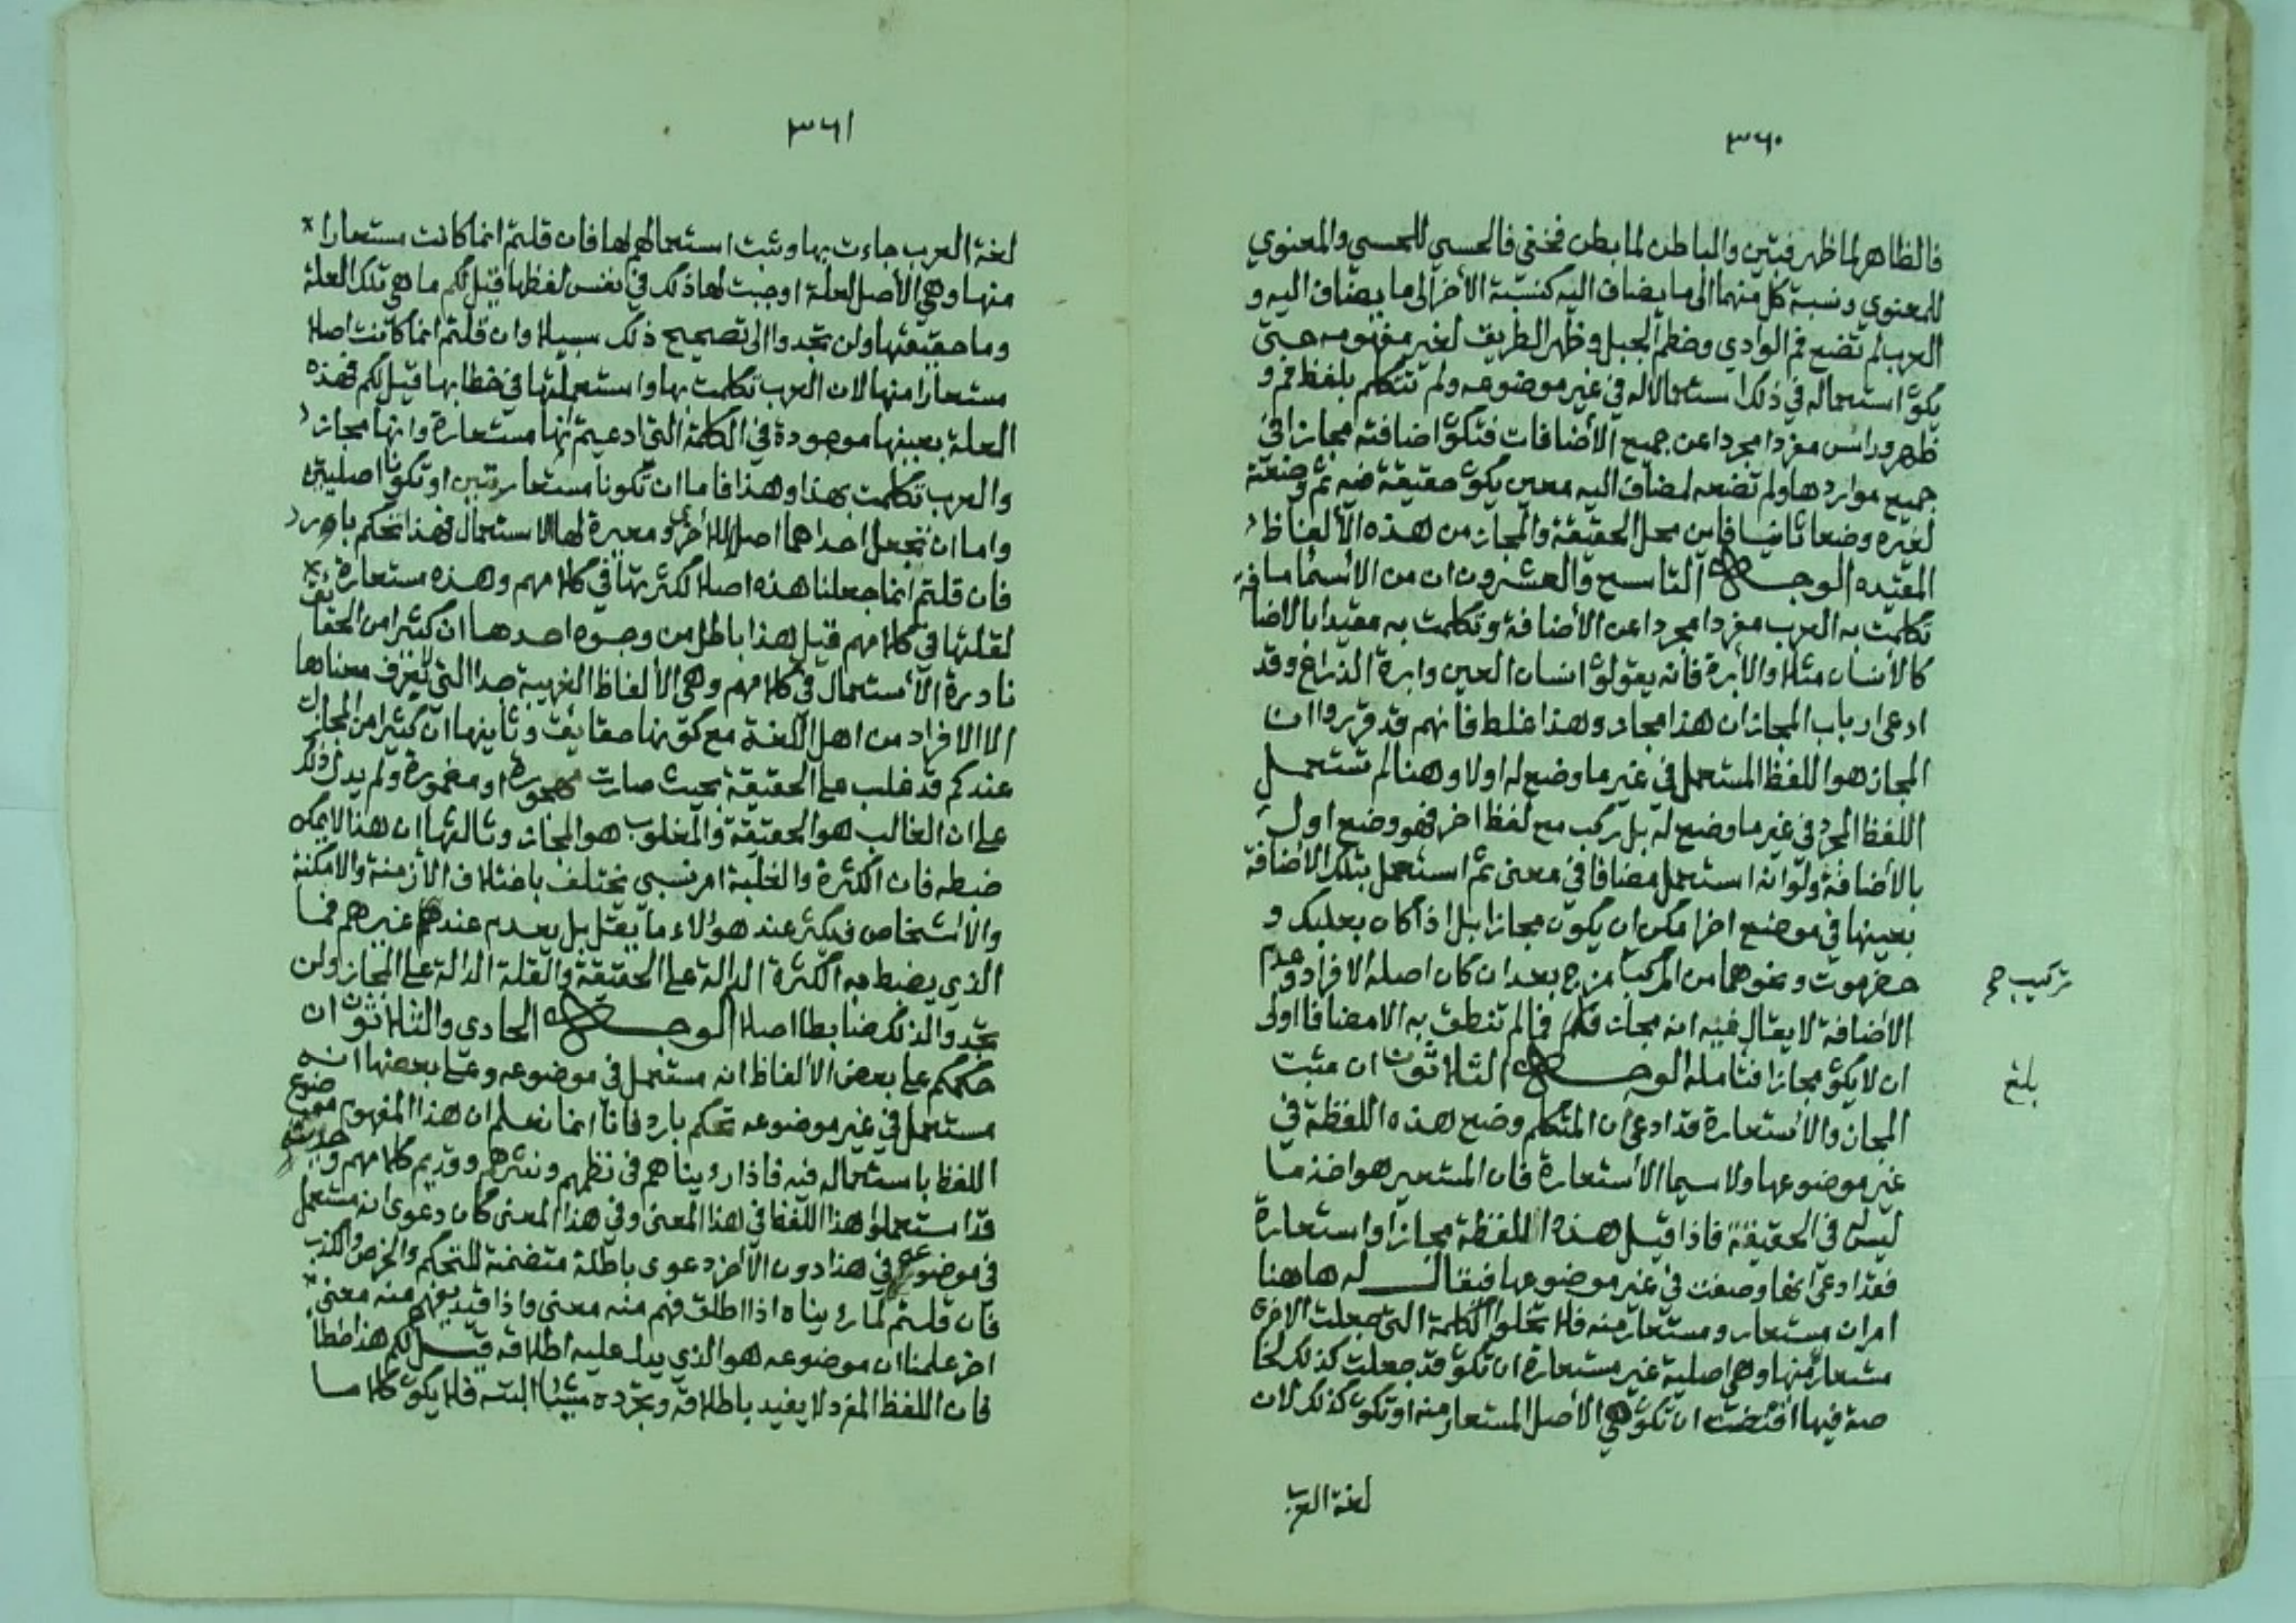 ٣٦٠
فالظاهر لما ظهر فتبين والباطن لما بطن فخفي فالحسي للحسي والمعنوي
للمعنوي ونسبة كل منهما الى ما يضاف اليه كنسبة الأخر الى ما يضاف اليه و
العرب لم تضع فم الوادي وخطم الجبل وظهر الطريق لغير مفهومه حتى
يكون استعماله في ذلك استعمالا له في غير موضوعه ولم تتكلم بلفظ فم و
ظهر وراس مفردا مجردا عن جميع الأضافات فتكون اضافته مجازا في
جميع مواردها ولم تضعه لمضاف اليه معين يكون حقيقة فيه ثم وضعته
لغيره وضعا ثانيا فاين محل الحقيقة والمجاز من هذه الألفاظ
المقيده الوجه التاسع والعشرون ان من الأسماء ما
تكلمت به العرب مفردا مجردا عن الأضافة وتكلمت به مقيدا بالاضافة
كالأنسان مثلا والأبرة فانه يقولون انسان العين وابرة الذراع وقد
ادعى ارباب المجاز ان هذا مجاز وهذا غلط فانهم قد قرروا ان
المجاز هو اللفظ المستعمل في غير ما وضع له اولا وهنا لم تستعمل
اللفظ المجرد في غير ما وضع له بل ركب مع لفظ اخر فهو وضع اول
بالأضافة ولو انه استعمل مضافا في معنى ثم استعمل بتلك الأضافة
بعينها في موضع اخر امكن ان يكون مجازا بل اذا كان بعلبك و
حضرموت ونحوهما من المركب مزج بعد ان كان اصله الافراد وعدم
تركيب صح
الأضافة لا يقال فيه انه مجاز فما لم تنطق به الا مضافا اولى
ان لا يكون مجازا فتامله الوجه الثلاثون ان مثبت
بلغ
المجاز والأستعارة قد ادعى ان المتكلم وضع هذه اللفظة في
غير موضوعها ولا سيما الأستعارة فان المستعير هو اخذ ما
ليس له في الحقيقة فاذا قيل هذه اللفظة مجازا واستعارة
فقد ادعى انها وضعت في غير موضوعها فيقال له هاهنا
امران مستعار ومستعار منه فلا تخلوا الكلمة التي جعلت الاخرى
مستعارة منها وهي اصلية غير مستعارة ان تكون قد جعلت كذلك لخا
صة فيها اقتضت ان تكون هي الأصل المستعار منه او تكون كذلك لان
لغة العرب
٣٦١
لغة العرب جاءت بها وثبت استعمالهم لها فان قلتم انما كانت مستعارا
منها وهي الأصل لعلة اوجبت لها ذلك في نفس لفظها قيل لكم ما هي تلك العلة
وما حقيقتها ولن تجدوا الى تصحيح ذلك سبيلا وان قلتم انما كانت اصلا
مستعارا منها لان العرب تكلمت بها واستعملتها في خطابها قيل لكم فهذه
العلة بعينها موجودة في الكلمة التي ادعيتم انها مستعارة وانها مجاز
والعرب تكلمت بهذا وهذا فاما ان تكونا مستعارتين او تكونا اصليتين
واما ان تجعل احداهما اصلا للأخرى ومعيرة لها الاستعمال فهذا تحكم بارد
فان قلتم انما جعلنا هذه اصلا لكثرتها في كلامهم وهذه مستعارة
لقلتها في كلامهم قيل هذا باطل من وجوه احدها ان كثيرا من الحقائق
نادرة الأستعمال في كلامهم وهي الألفاظ الغريبة جدا التي لا يعرف معناها
الا الافراد من اهل اللغة مع كونها حقايق وثانيها ان كثيرا من المجازات
عندكم قد غلب على الحقيقة بحيث صارت مهجورة او مغمورة ولم يدل ذلك
على ان الغالب هو الحقيقة والمغلوب هو المجاز وثالثها ان هذا لا يمكن
ضبطه فان الكثرة والغلبة امر نسبي يختلف باختلاف الأزمنة والامكنة
والأشخاص فيكثر عند هؤلاء ما يقل بل يعدم عند غيرهم فما
الذي يضبط به الكثرة الدالة على الحقيقة والقلة الدالة على المجاز ولن
تجدوا لذلك ضابطا اصلا الوجه الحادي والثلاثون ان
حكمكم على بعض الألفاظ انه مستعمل في موضوعه وعلى بعضها انه
مستعمل في غير موضوعه تحكم بارد فانا انما نعلم ان هذا المفهوم موضوع
اللفظ باستعماله فيه فاذا رويناهم في نظمهم ونثرهم وقديم كلامهم وحديثه
قد استعملوا هذا اللفظ في هذا المعنى وفي هذا المعنى كان دعوى انه مستعمل
في موضوعه في هذا دون الأخر دعوى باطلة متضمنة للتحكم والخرص والكذب
فان قلتم لما رويناه اذا اطلق فهم منه معنى واذا قيد يفهم منه معنى
اخر علمنا ان موضوعه هو الذي يدل عليه اطلاقه قيل لكم هذا خطأ
فان اللفظ المفرد لا يفيد باطلاقه وتجرده شيئا البته فلا يكون كلاما